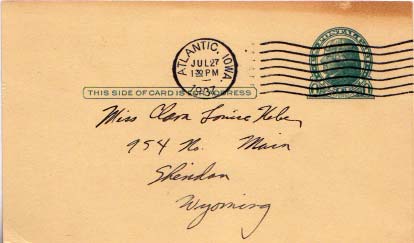 ATLANTIC, IOWA.
JUL 27
PM
POSTAL
THIS SIDE OF CARD IS FOR ADDRESS
Miss Clara Louise
954 No. Main
Sheridan
Wyoming